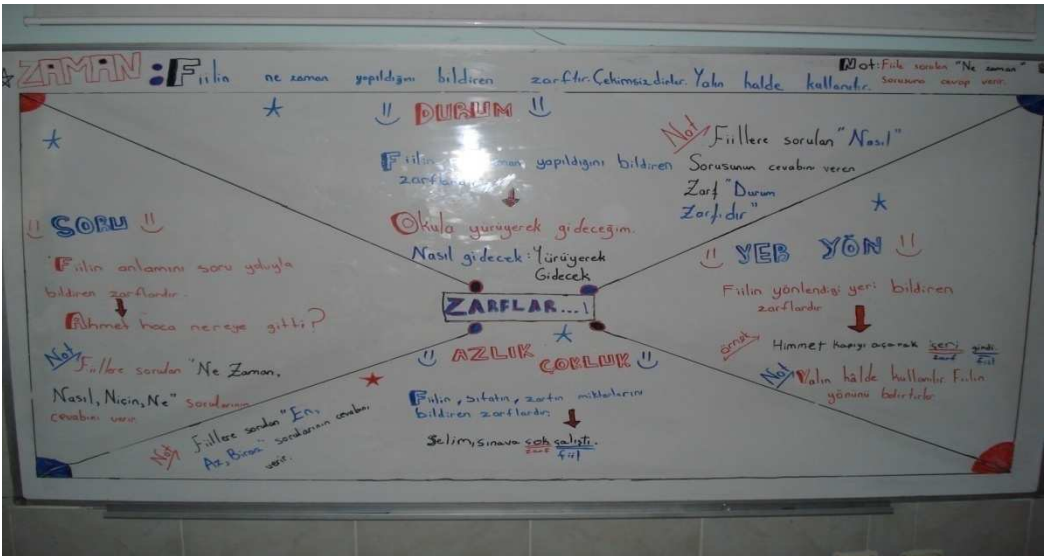 ZAMAN : Fiilin ne zaman yapıldığını bildiren zarftır. Çekimsizdirler. Yalın halde kullanılır.
Not: Fiile sorulan "Ne zaman"
Sorusuna cevap verir.
DURUM
Fiilin zaman yapıldığını bildiren
zarflardır
Okula yürüyerek gideceğim.
Nasıl gidecek: Yürüyerek
Gidecek
Not Fiillere sorulan "Nasıl"
Sorusunun cevabını veren
Zarf "Durum
Zarfıdır"
SORU
Fiilin anlamını soru yoluyla
bildiren zarflardır.
Ahmet hoca nereye gitti?
Not Fiillere sorulan "Ne Zaman,
Nasıl, Niçin, Ne" sorularının
cevabını verir.
ZARFLAR...!
YER YÖN
Fiilin yönlendiği yeri bildiren
zarflardır
örnek Himmet kapıyı açarak içeri girdi.
zarf fiil
Not Yalın hâlde kullanılır Fiilin
yönünü belirtirler
AZLIK
ÇOKLUK
Fiilin, sıfatın, zarfın miktarlarını
bildiren zarflardır
Selim, sınava çok çalıştı.
zarf fiil
Not Fiillere sorulan "En,
Az, Biraz" sorularının cevabını
verir.